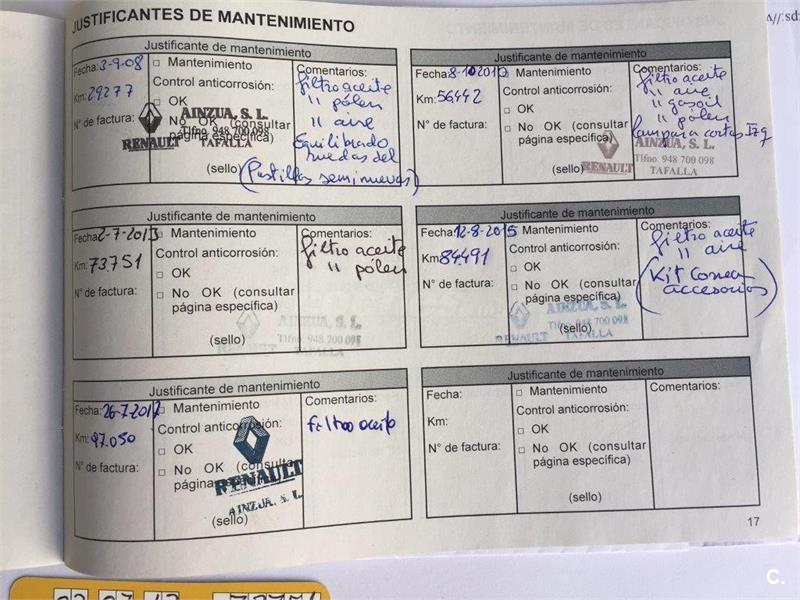 JUSTIFICANTES DE MANTENIMIENTO
Justificante de mantenimiento
Fecha: 3-9-08
Km: 29277
N° de factura:
□ Mantenimiento
Control anticorrosión:
□ OK
□ No OK (consultar
página específica)
(sello)
AINZUA, S. L.
Tlfno. 948 700 098
RENAULT TAFALLA
Comentarios:
filtro aceite
" pólen
" aire
Equilibrado
ruedas del
(Pastillas seminuevas)
Justificante de mantenimiento
Fecha: 8-10-2010
Km: 56442
N° de factura:
□ Mantenimiento
Control anticorrosión:
□ OK
□ No OK (consultar
página específica)
(sello)
AINZUA, S. L.
Tlfno. 948 700 098
RENAULT TAFALLA
Comentarios:
filtro aceite
" aire
" gasoil
" pólen
lampara cortas Izq
Justificante de mantenimiento
Fecha: 2-7-2013
Km: 73.751
N° de factura:
□ Mantenimiento
Control anticorrosión:
□ OK
□ No OK (consultar
página específica)
(sello)
AINZUA, S. L.
Tlfno. 948 700 098
RENAULT TAFALLA
Comentarios:
filtro aceite
" pólen
Justificante de mantenimiento
Fecha: 12-8-2015
Km: 84491
N° de factura:
□ Mantenimiento
Control anticorrosión:
□ OK
□ No OK (consultar
página específica)
(sello)
AINZUA, S. L.
Tlfno. 948 700 098
RENAULT TAFALLA
Comentarios:
filtro aceite
" aire
(Kit correa
accesorios)
Justificante de mantenimiento
Fecha: 26-7-2017
Km: 97.050
N° de factura:
□ Mantenimiento
Control anticorrosión:
□ OK
□ No OK (consultar
página específica)
(sello)
RENAULT
AINZUA, S. L.
Comentarios:
filtro aceite
Justificante de mantenimiento
Fecha:
Km:
N° de factura:
□ Mantenimiento
Control anticorrosión:
□ OK
□ No OK (consultar
página específica)
(sello)
Comentarios:
17
C.